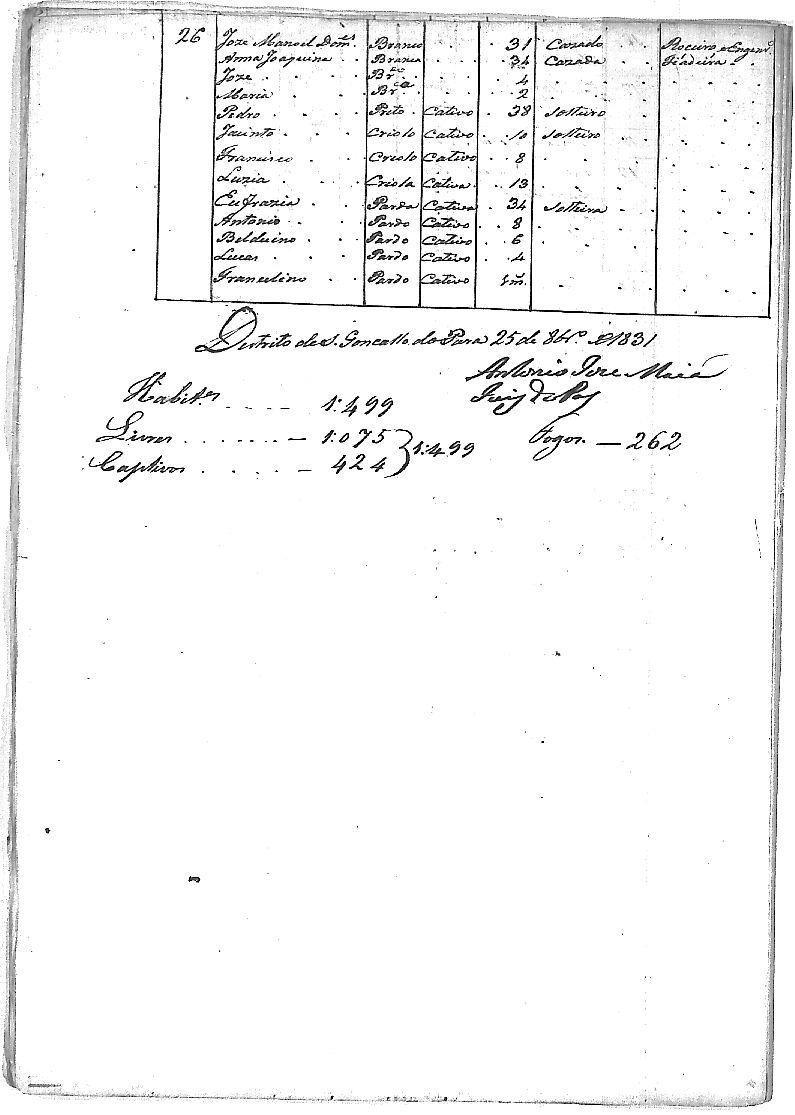 26 Joze Manoel Dom.s Branco 31 Cazado Roceiro e Engenr.o
Anna Joaquina Branca 34 Cazada Fiadeira
Joze Br.co 4
Maria Br.ca 2
Pedro Preto Cativo 38 Solteiro
Jacinto Criolo Cativo 10 Solteiro
Francisco Criolo Cativo 8
Luzia Criola Cativa 13
Eufrazia Parda Cativa 34 Solteira
Antonio Pardo Cativo 8
Belduino Pardo Cativo 6
Lucas Pardo Cativo 4
Francelino Pardo Cativo 1m.
Destrito de S. Goncallo do Para 25 de 8br.o 1831
Antonio Joze Maia
Juiz de Paz
Habit.es 1:499
Livres 1:075
Captivos 424
1:499
Fogos 262